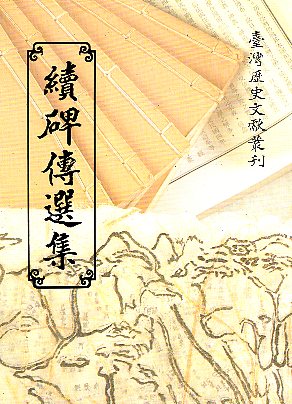 臺灣歷史文獻叢刊
續碑傳選集